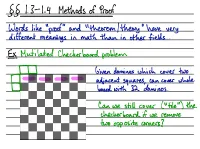 §§ 1.3-1.4 Methods of Proof
Words like "proof" and "theorem/theory" have very
different meanings in math than in other fields.
Ex Mutilated Checkerboard problem
Given dominos which cover two
adjacent squares, can cover whole
board with 32 dominos
Can we still cover ("tile") the
checkerboard if we remove
two opposite corners?